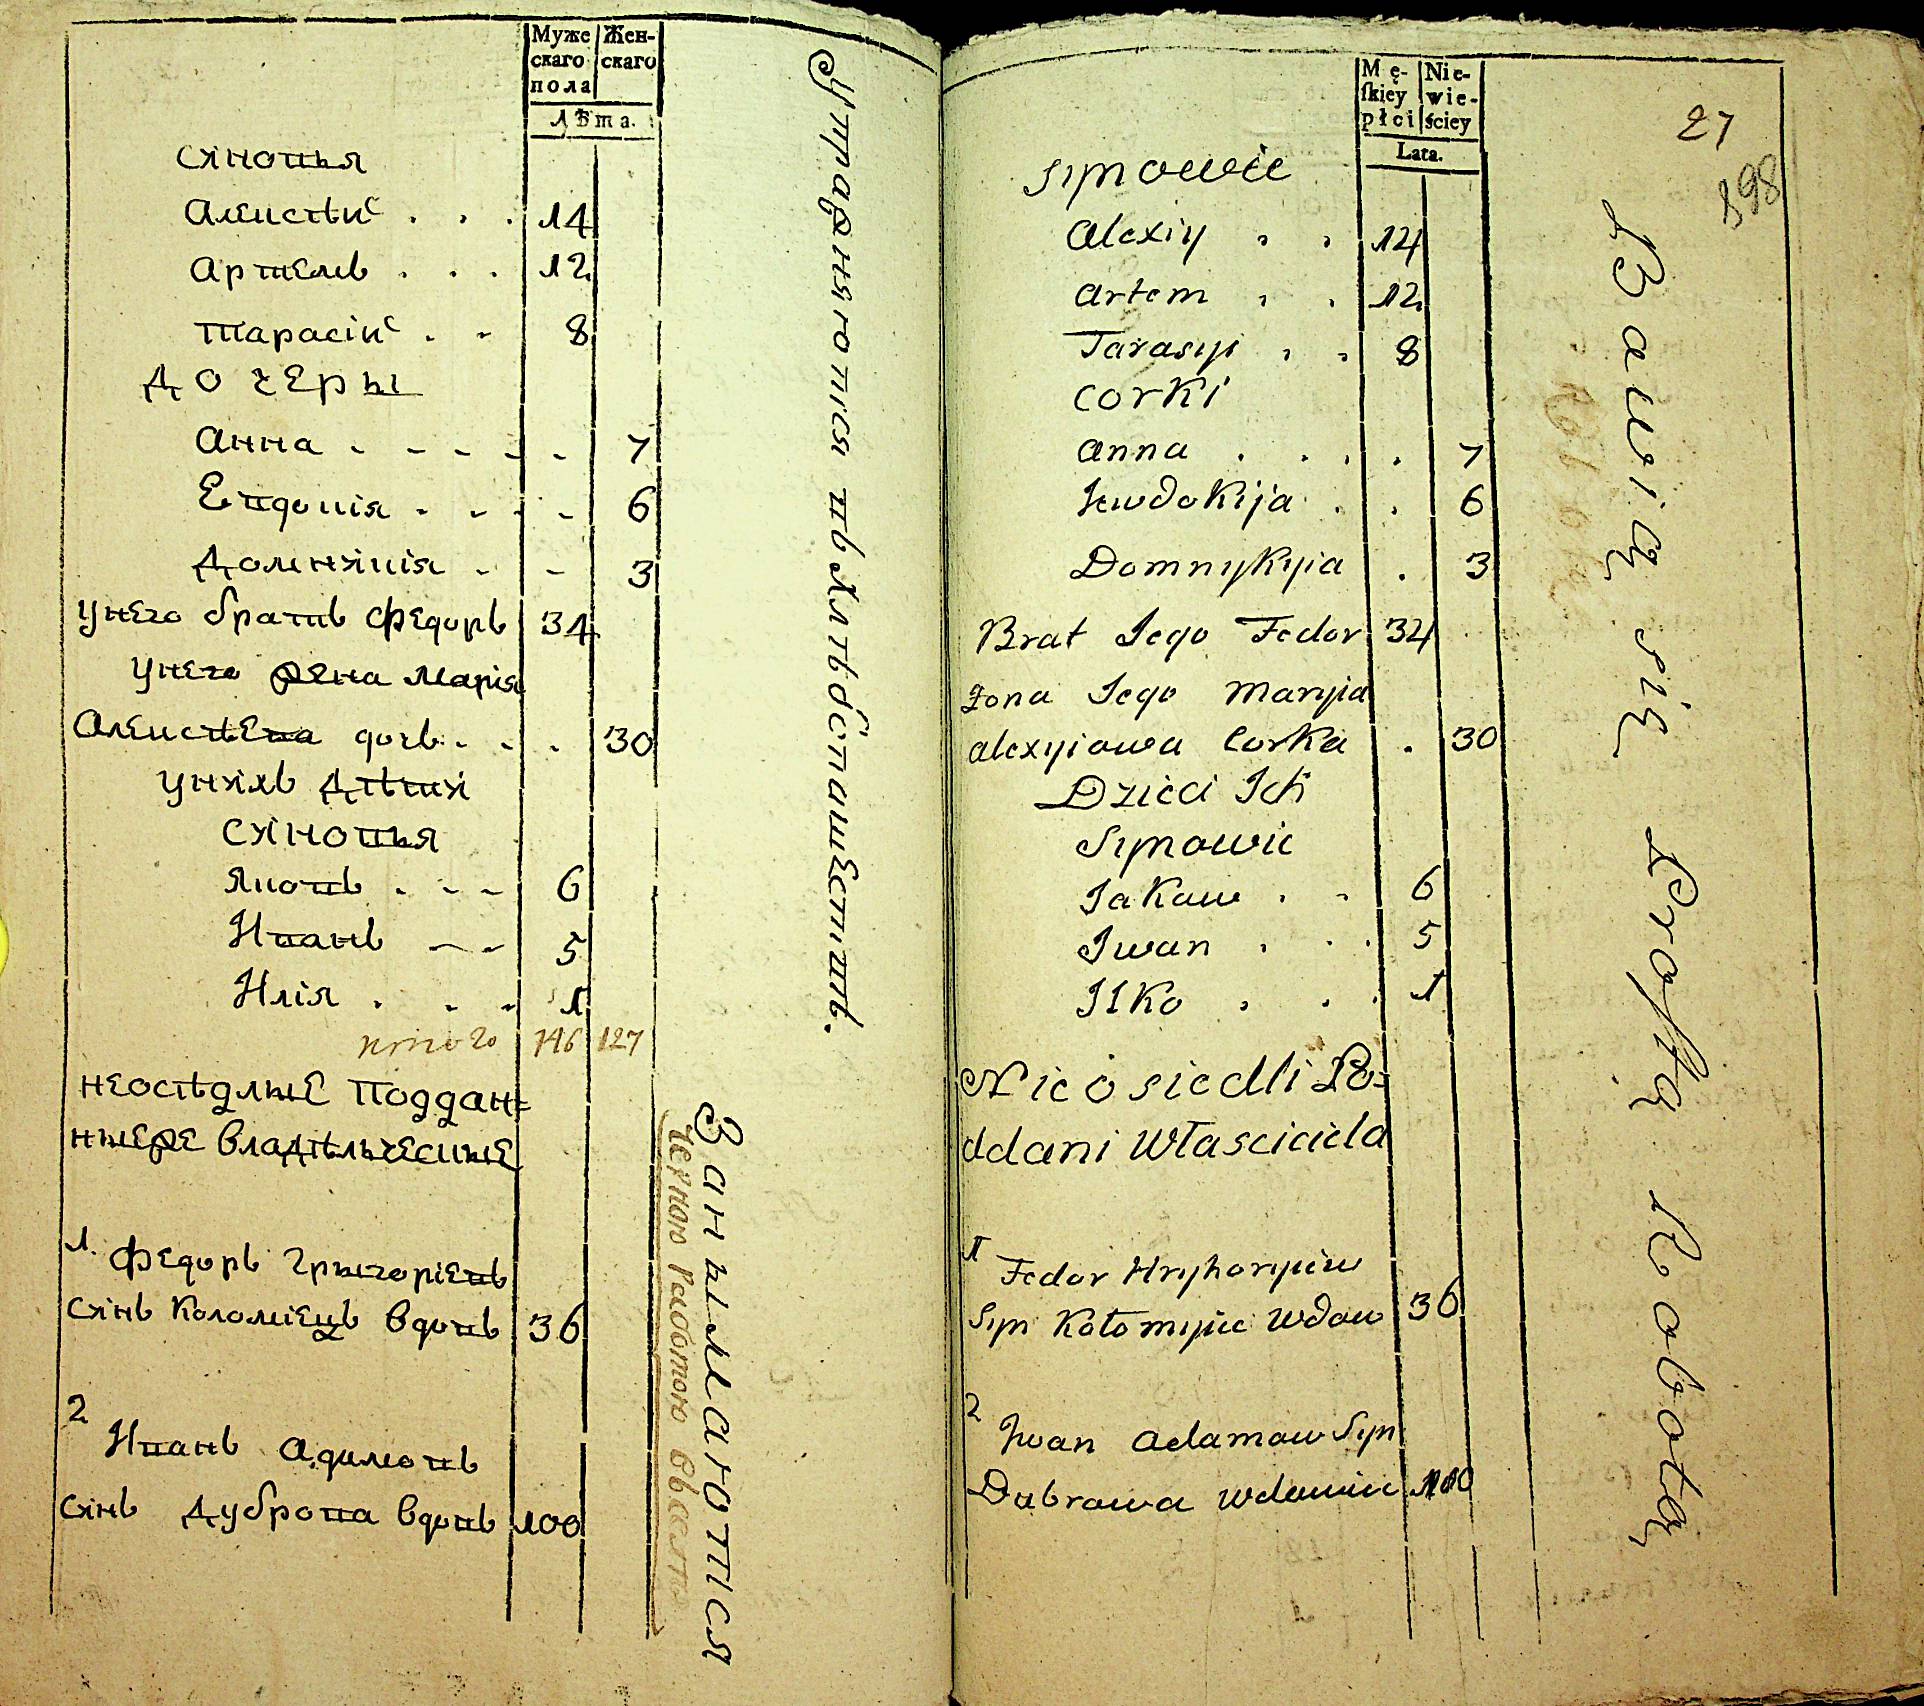 Муже Жен-
скаго скаго
пола
Лѣта.
сынопья
Алексѣй . . . 14
Артемъ . . . 12
Тарасій . . 8
Дочеры
Анна . - - - - - 7
Евдокія - - - - 6
Домникія - - 3
унего братъ Федоръ 34
унего жена Марія
Алексѣева дочь . - . 30
унихъ дѣти
сыновья
Яковъ . - - 6
Иванъ - - 5
Илія . . - 1
итого 146 127
неосѣдлые Поддан=
ныеже владѣльческые
1. Федоръ Грыгоріевъ
сынъ Коломіецъ вдовъ 36
2 Иванъ Адамовъ
сынъ Дуброва вдовъ 100
Упражняютися въ хлѣбопашествѣ.
Заныmaютися
черною работою
Mę- Nie-
ſkiey wie-
płci ściey
Lata.
27
898
synowie
Alexiy . . 14
Artem . . 12
Tarasyi . . 8
corki
Anna . . . . 7
Jewdokija . . 6
Domnykyia . 3
Brat Jego Fedor 34
żona Jego Maryia
Alexyiowa Corka . 30
Dzieci Ich
Synowie
Jakow . . 6
Iwan . . . 5
Ilko . . . 1
Nie osiedli Po=
ddani Własciciela
1 Fedor Hryhoryiew
Syn Kołomyiec Wdow 36
2 Iwan Adamow Syn
Dubrowa wdowiec 100
Bawią się Prostą Robotą